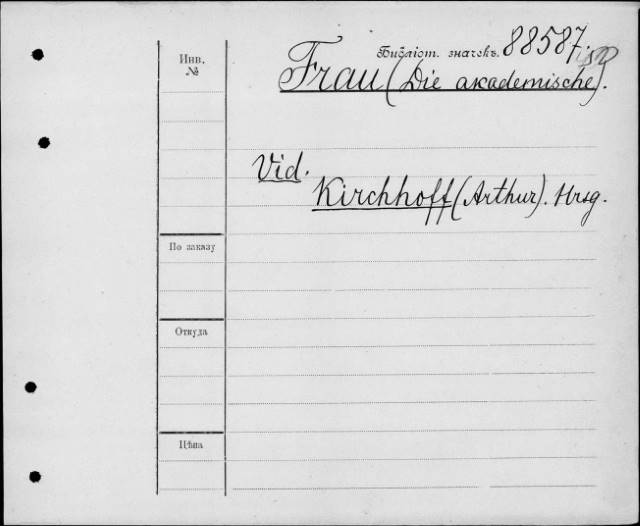 Библіот. значекъ. 88587.
Инв.
№
Frau (Die akademische).
Vid.
Kirchhoff (Arthur). Hrsg.
По заказу
Откуда
Цѣна